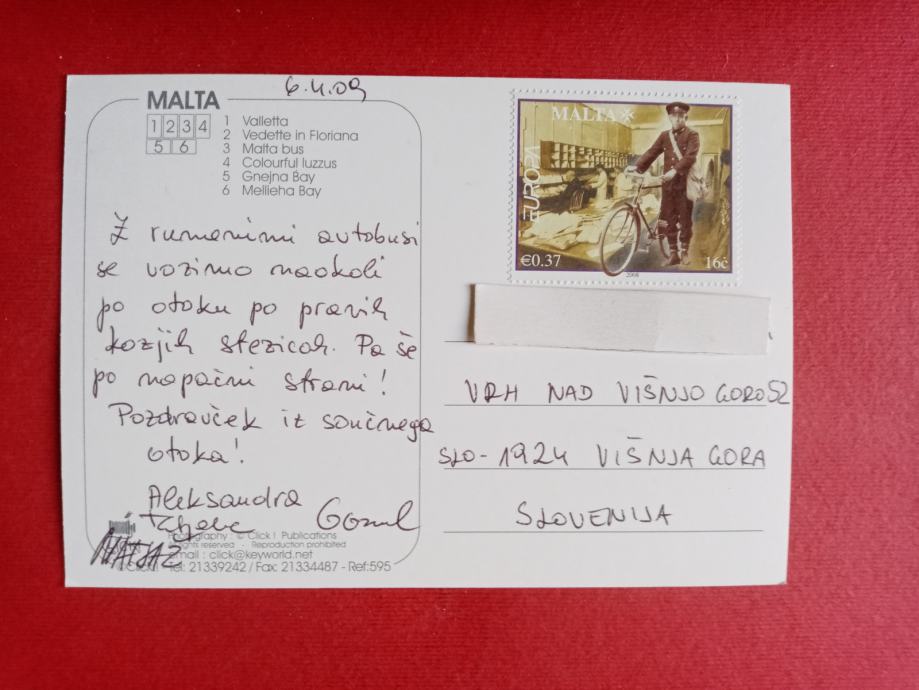 6.4.09
MALTA
1 2 3 4
5 6
1 Valletta
2 Vedette in Floriana
3 Malta bus
4 Colourful luzzus
5 Gnejna Bay
6 Mellieha Bay
Z rumenimi avtobusi
se vozimo naokoli
po otoku po pravih
kozjih stezicah. Pa še
po napačni strani!
Pozdravček iz sončnega
otoka!
Aleksandra
MATJAŽ
Photography : © Click ! Publications
rights reserved - Reproduction prohibited
email : click@keyworld.net
Click! - Tel: 21339242 / Fax: 21334487 - Ref:595
MALTA
EUROPA
€0.37
16c
2008
VRH NAD VIŠNJO GORO 52
SLO-1924 VIŠNJA GORA
SLOVENIJA